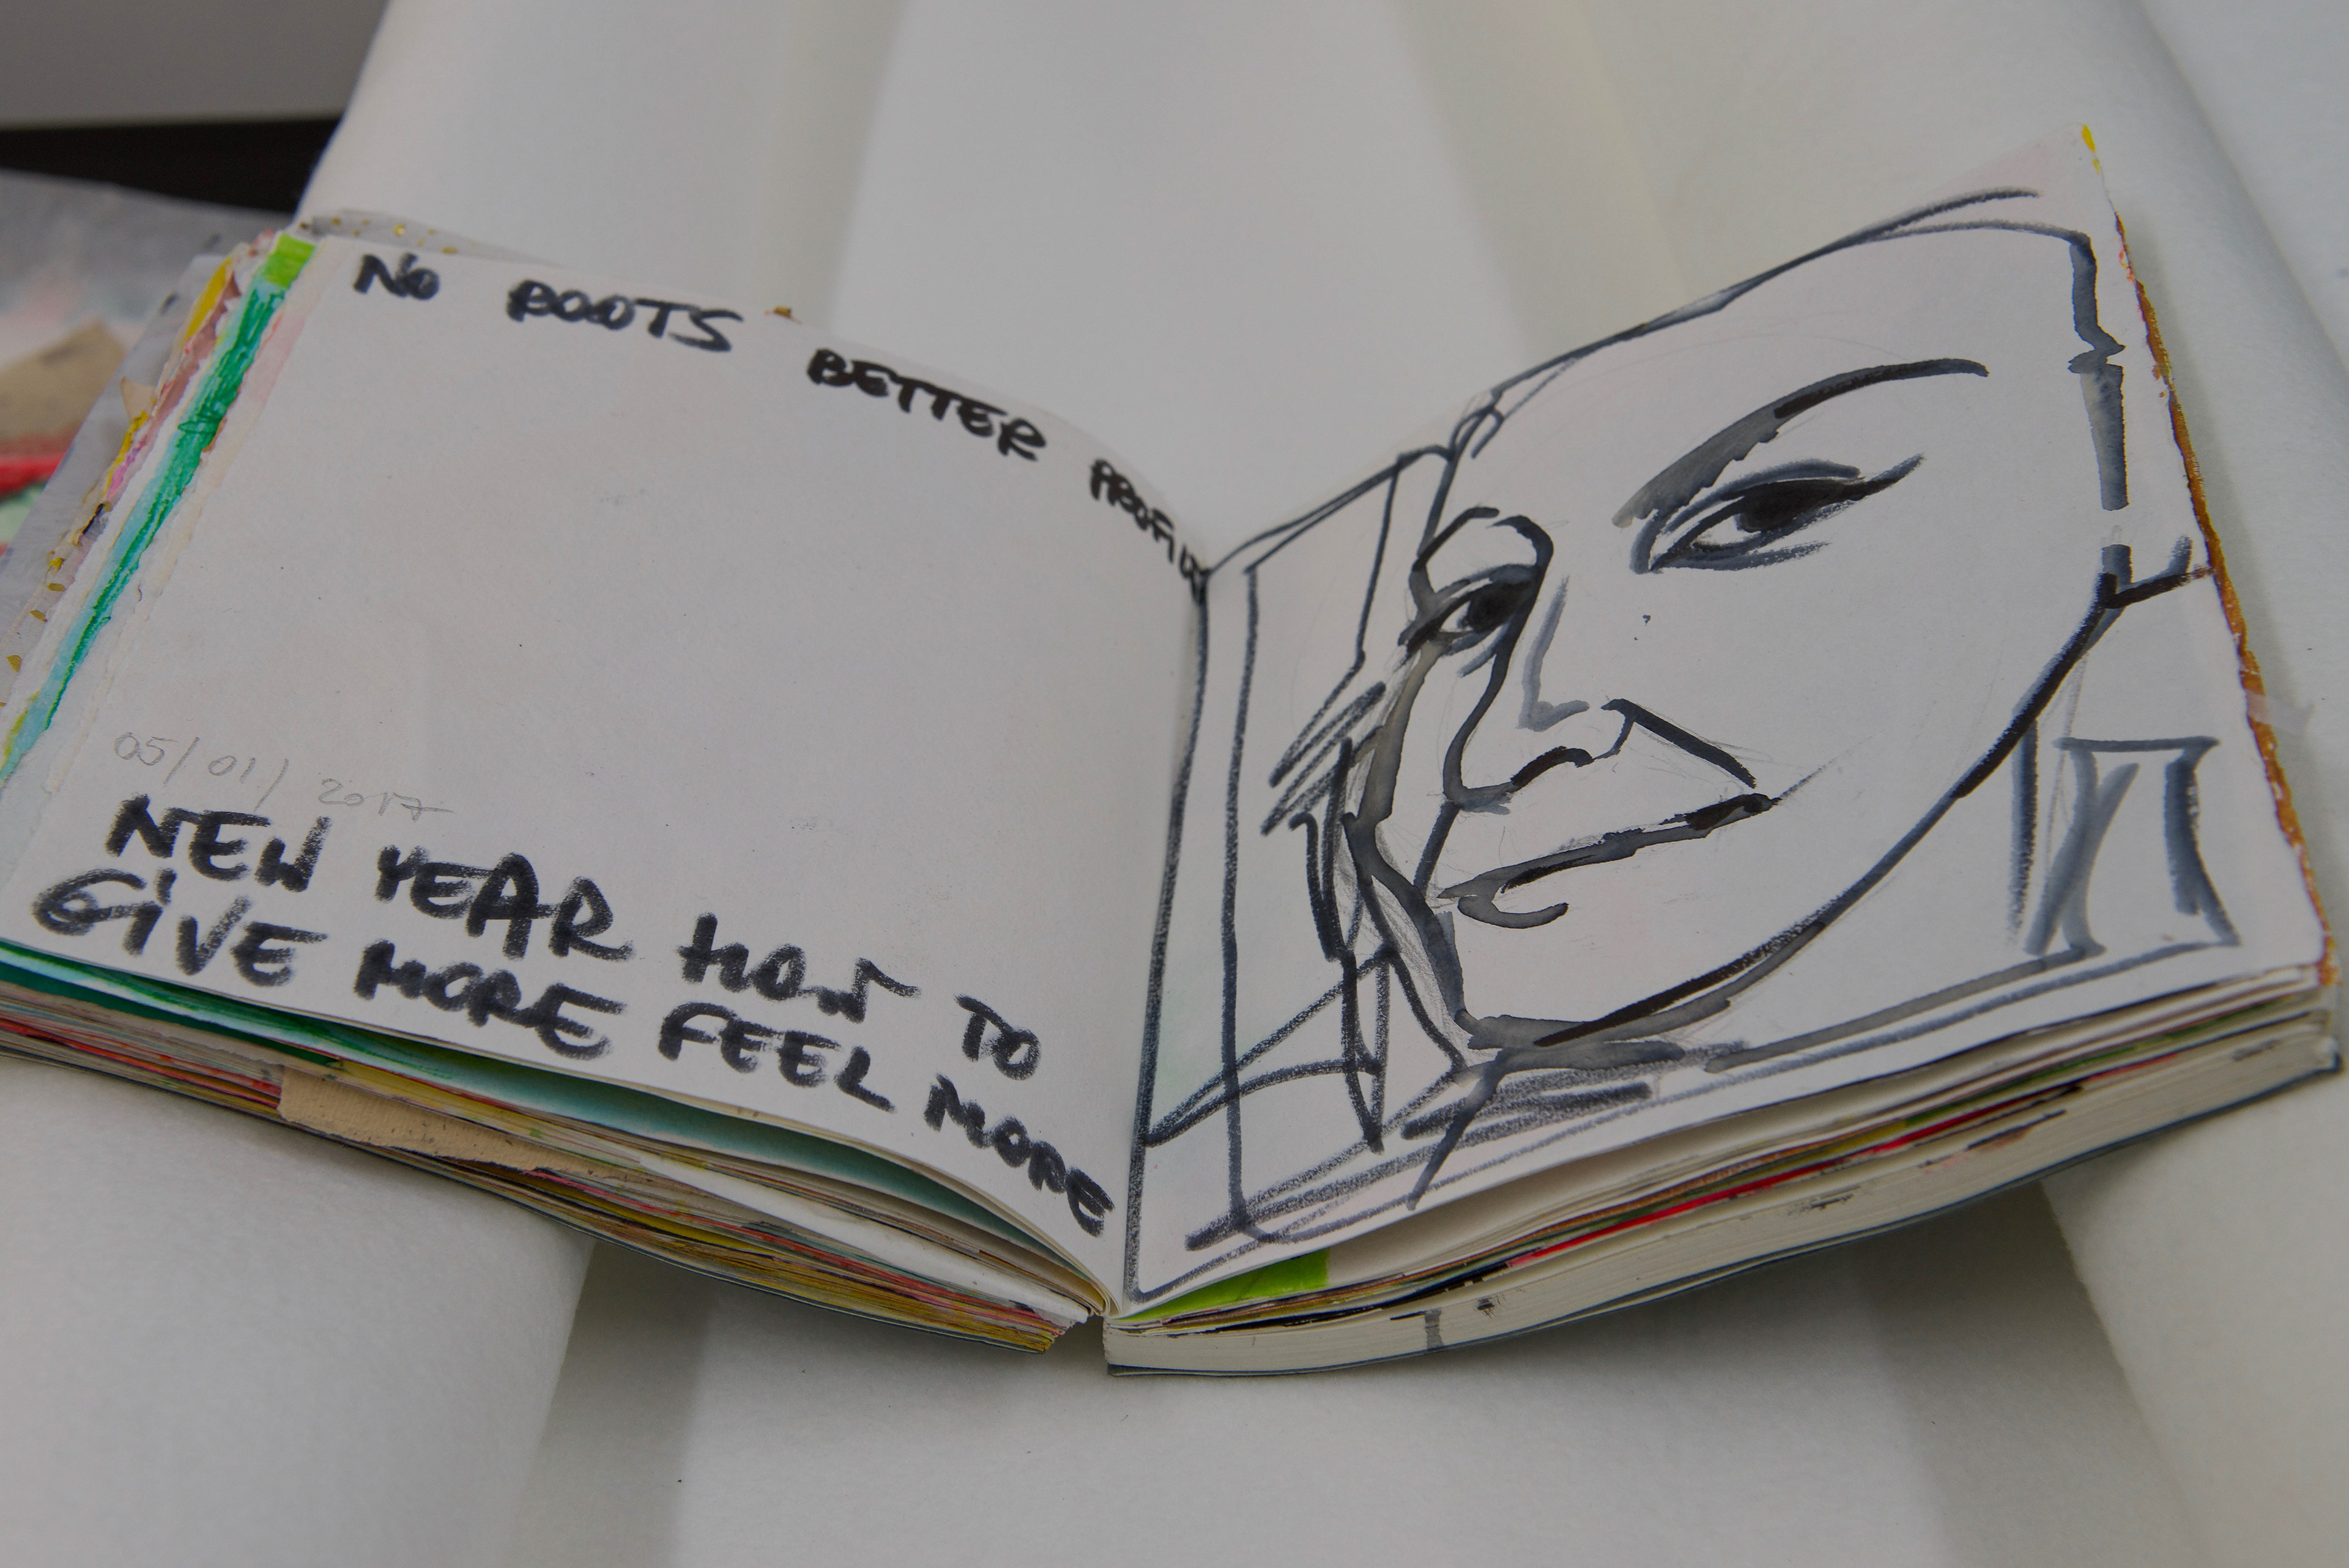 NO ROOTS BETTER
05/01/2017
NEW YEAR HOW TO
GIVE MORE FEEL MORE